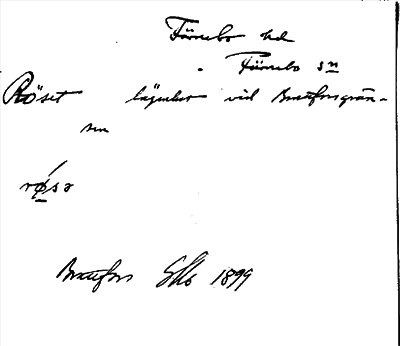 Färnebo hd
Färnebo sn
Röset lägenhet vid Brattforsgrän-
sen
røsə
Brattfors Gks 1899